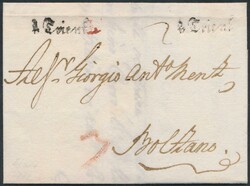 Trient Trient
Sig.r Giorgio Ant.o
Bolzano.